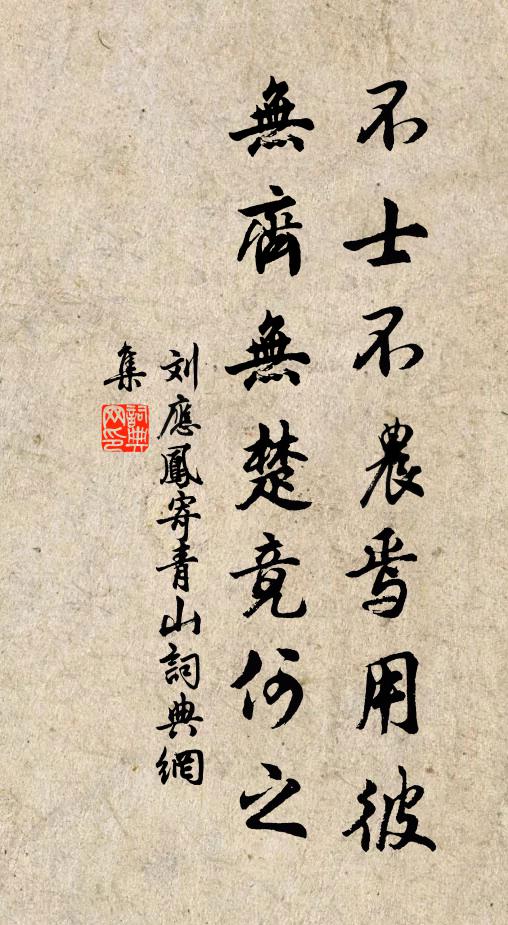 不士不農焉用彼
無齊無楚竟何之
刘應鳳寄青山詞典網
集
詞典
网印